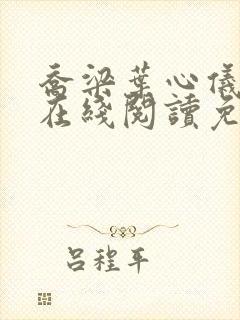 喬梁葉心儀
在綫閱讀免
吕程平